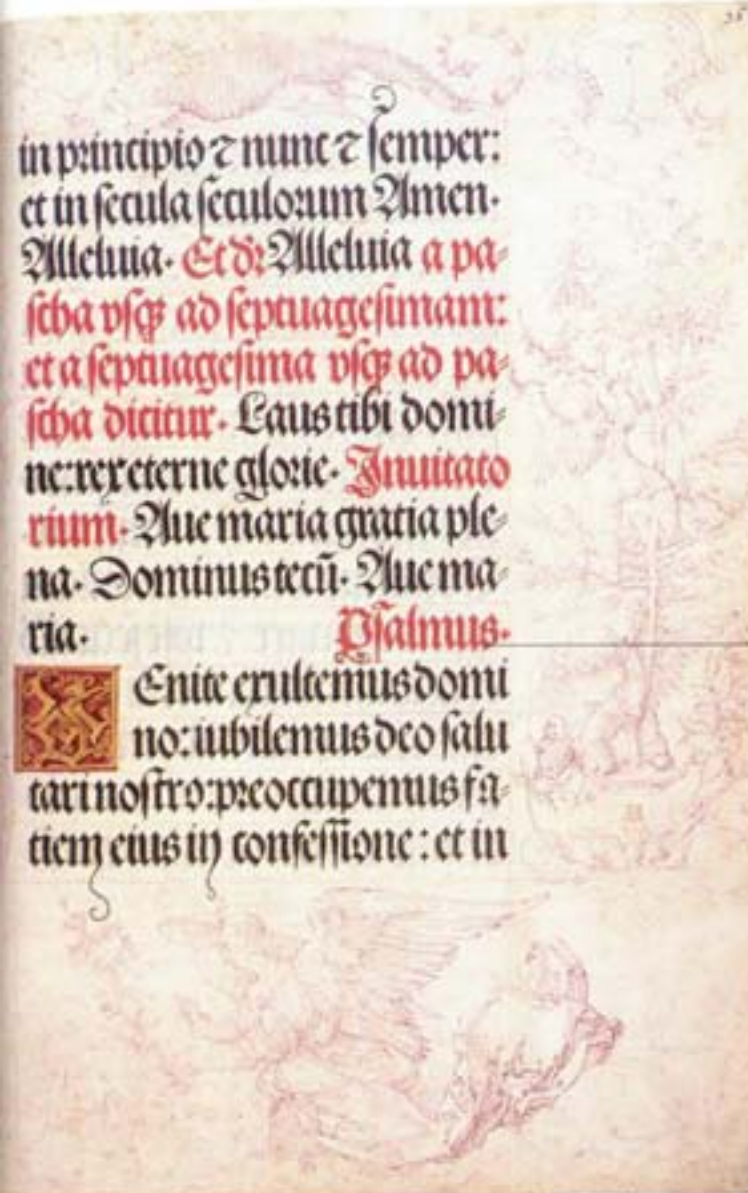 in principio ⁊ nunc ⁊ semper:
et in secula seculorum Amen.
Alleluia. Et dr̄ Alleluia a pa⸗
scha vsq̃ ad septuagesimam:
et a septuagesima vsq̃ ad pa⸗
scha dicitur. Laus tibi domi⸗
ne: rex eterne glorie. Inuitato
rium. Aue maria gratia ple⸗
na. Dominus tecū. Aue ma⸗
ria. Psalmus.
Enite exultemus domi
no: iubilemus deo salu
tari nostro: preoccupemus fa⸗
ciem eius in confessiōne: et in